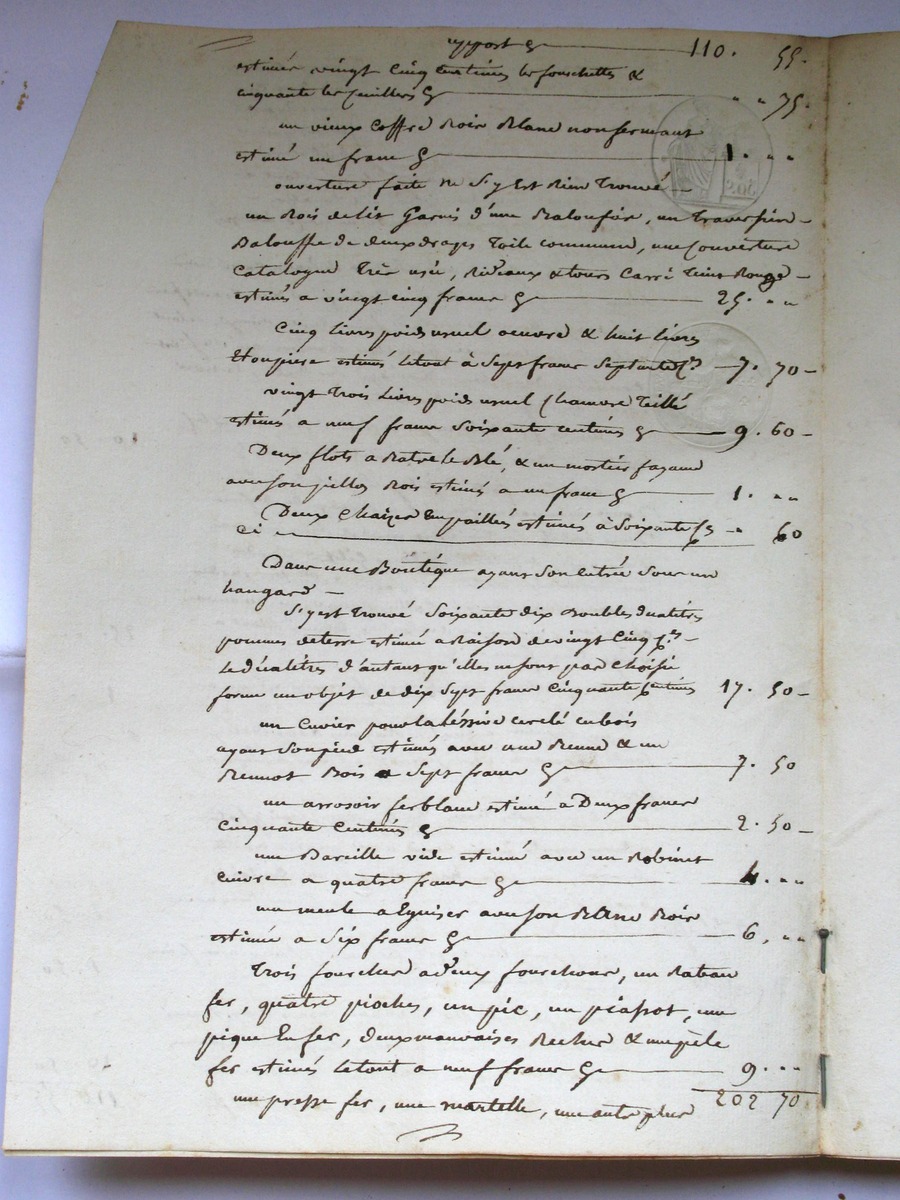 report ci 110. 55.
estimés vingt cinq centimes les fourchettes &
cinquante les cuillers Ci " " 75.
un vieux coffre Bois Blanc non fermant
estimé un franc Ci 1. " "
ouverture faite ne s'y est Rien Trouvé —
un Bois de lit Garni d'une Baloufière, un Traversière
Balouffe de deux draps Toile commune, une Couverture
Catalogne Très usée, Rideaux & tours Carré Teint Rouge —
estimés a vingt cinq francs Ci 25. " "
Cinq Livres poids usuel oeuvre & huit livres
Etoupiere estimés Letout à Sept francs Septante Cs 7. 70 —
vingt Trois Livres poids usuel Chanvre Teillé
estimés a neuf francs Soixante centimes Ci 9. 60 —
Deux flots a Batre le Blé, & un mortier
avec son Bois estimés a un franc Ci 1. " "
Deux Chaizes Empaillés estimés à Soixante Cs
Ci " 60
Dans une Boutique ayant Son entrée Sous un
hangard —
S'y est Trouvé Soixante dix Doubles dcalitres
pommes deterre estimé a Raison de vingt Cinq Cs —
Le dcalitres d'autant qu'elles ne sont pas Choisie
forme un objet de dix Sept francs Cinquante Centimes 17. 50 —
un Cuvier pour la Léssive cerclé en bois
ayant Son pied estimés avec une Benne & un
Bennot Bois a Sept francs Ci 7. 50
un arrosoir ferblanc estimé a Deux francs
Cinquante Centimes Ci 2. 50 —
une Bareille vide estimé avec un Robinet
Cuivre a quatre francs Ci 4. " "
une meule a Eguiser avec Son Blanc Bois
estimée a Six francs Ci 6. " "
Trois fourches adeux fourchons, un Rateau
fer, quatre pioches, un pic, un piassot, une
pique En fer, deux mauvaises Beches & une pèle
fer estimés Letout a neuf francs Ci 9. " "
202 70
une presse fer, une martelle, une autre plus